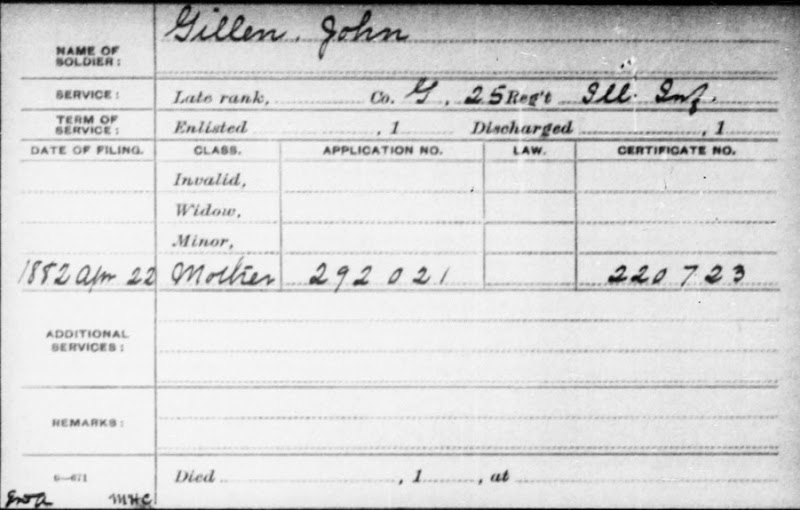 Gillen, John
NAME OF
SOLDIER:
SERVICE: Late rank, Co. G, 25 Reg't Ill. Inf.
TERM OF
SERVICE: Enlisted , 1 Discharged , 1
DATE OF FILING. CLASS. APPLICATION NO. LAW. CERTIFICATE NO.
Invalid,
Widow,
Minor,
1882 Apr 22 Mother 292 021 220 723
ADDITIONAL
SERVICES:
REMARKS:
6—671 Died , 1 , at
MHC